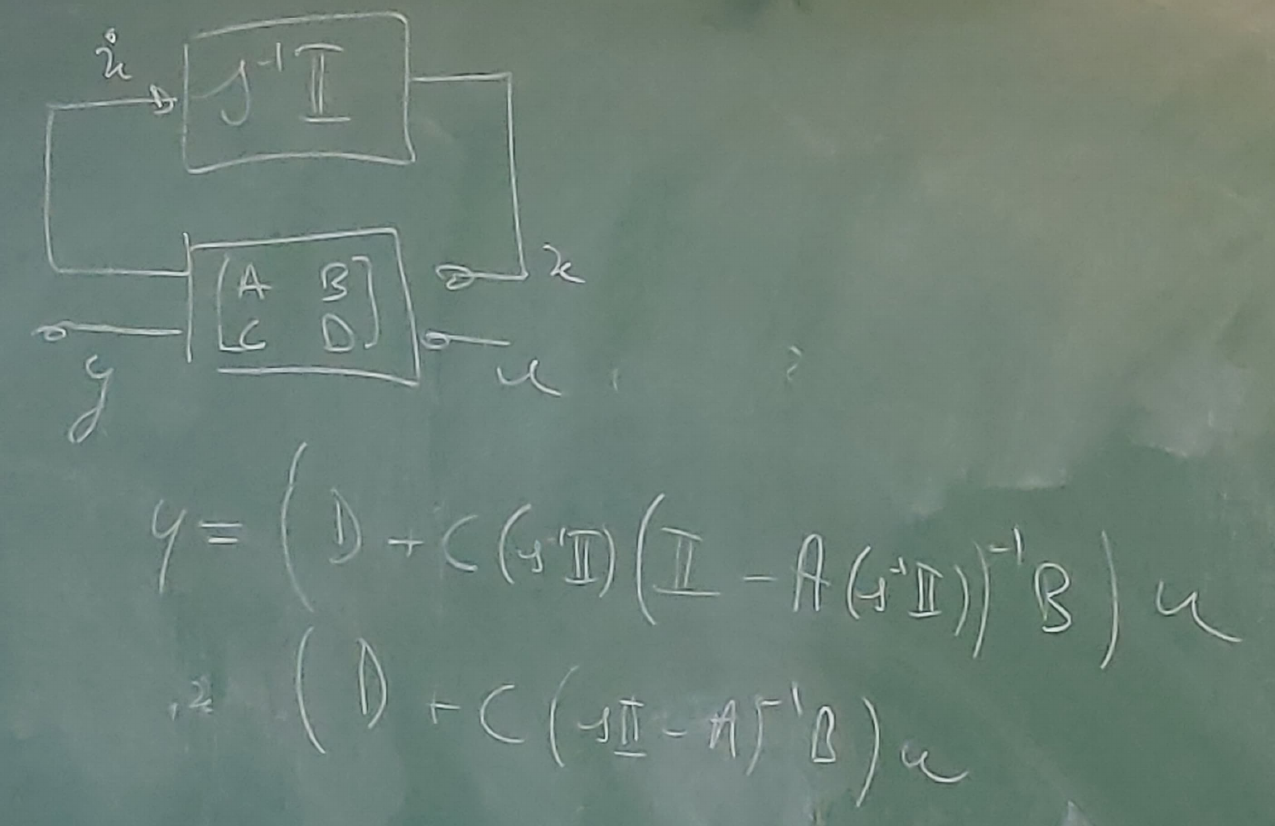 ẋ
s⁻¹𝕀
x
[A B
C D]
y
u
y = (D + C(s⁻¹𝕀)(𝕀 - A(s⁻¹𝕀))⁻¹B)u
= (D + C(s𝕀 - A)⁻¹B)u